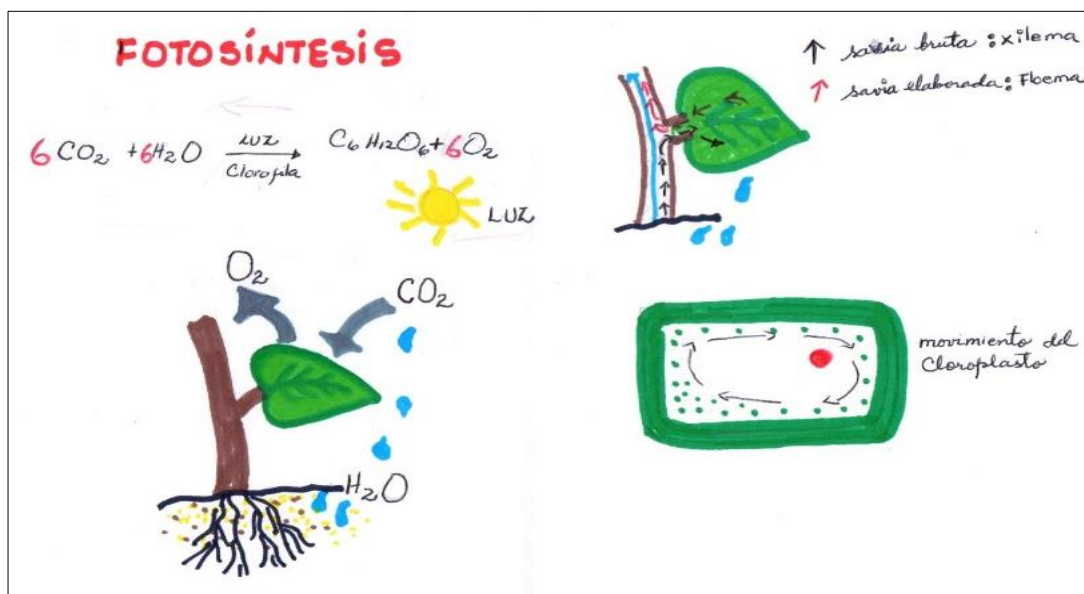 FOTOSÍNTESIS
6CO₂ + 6H₂O LUZ Clorofila C₆H₁₂O₆ + 6O₂
LUZ
O₂
CO₂
H₂O
savia bruta: xilema
savia elaborada: Floema
movimiento del
Cloroplasto